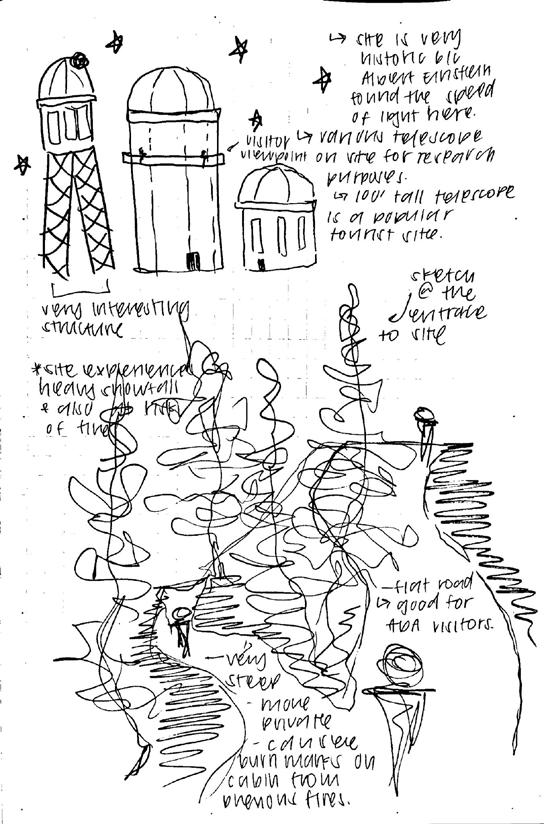 ↳ site is very
historic b/c
Albert Einstein
found the speed
of light here.
visitor
viewpoint
↳ various telescope
on site for research
purposes.
↳ 100' tall telescope
is a popular
tourist site.
very interesting
structure
sketch
@ the
entrace
to site
*site experiences
heavy snowfall
& also at risk
of fire
- flat road
↳ good for
ADA visitors.
- very
steep
- more
private
- can see
burn marks on
cabin from
previous fires.